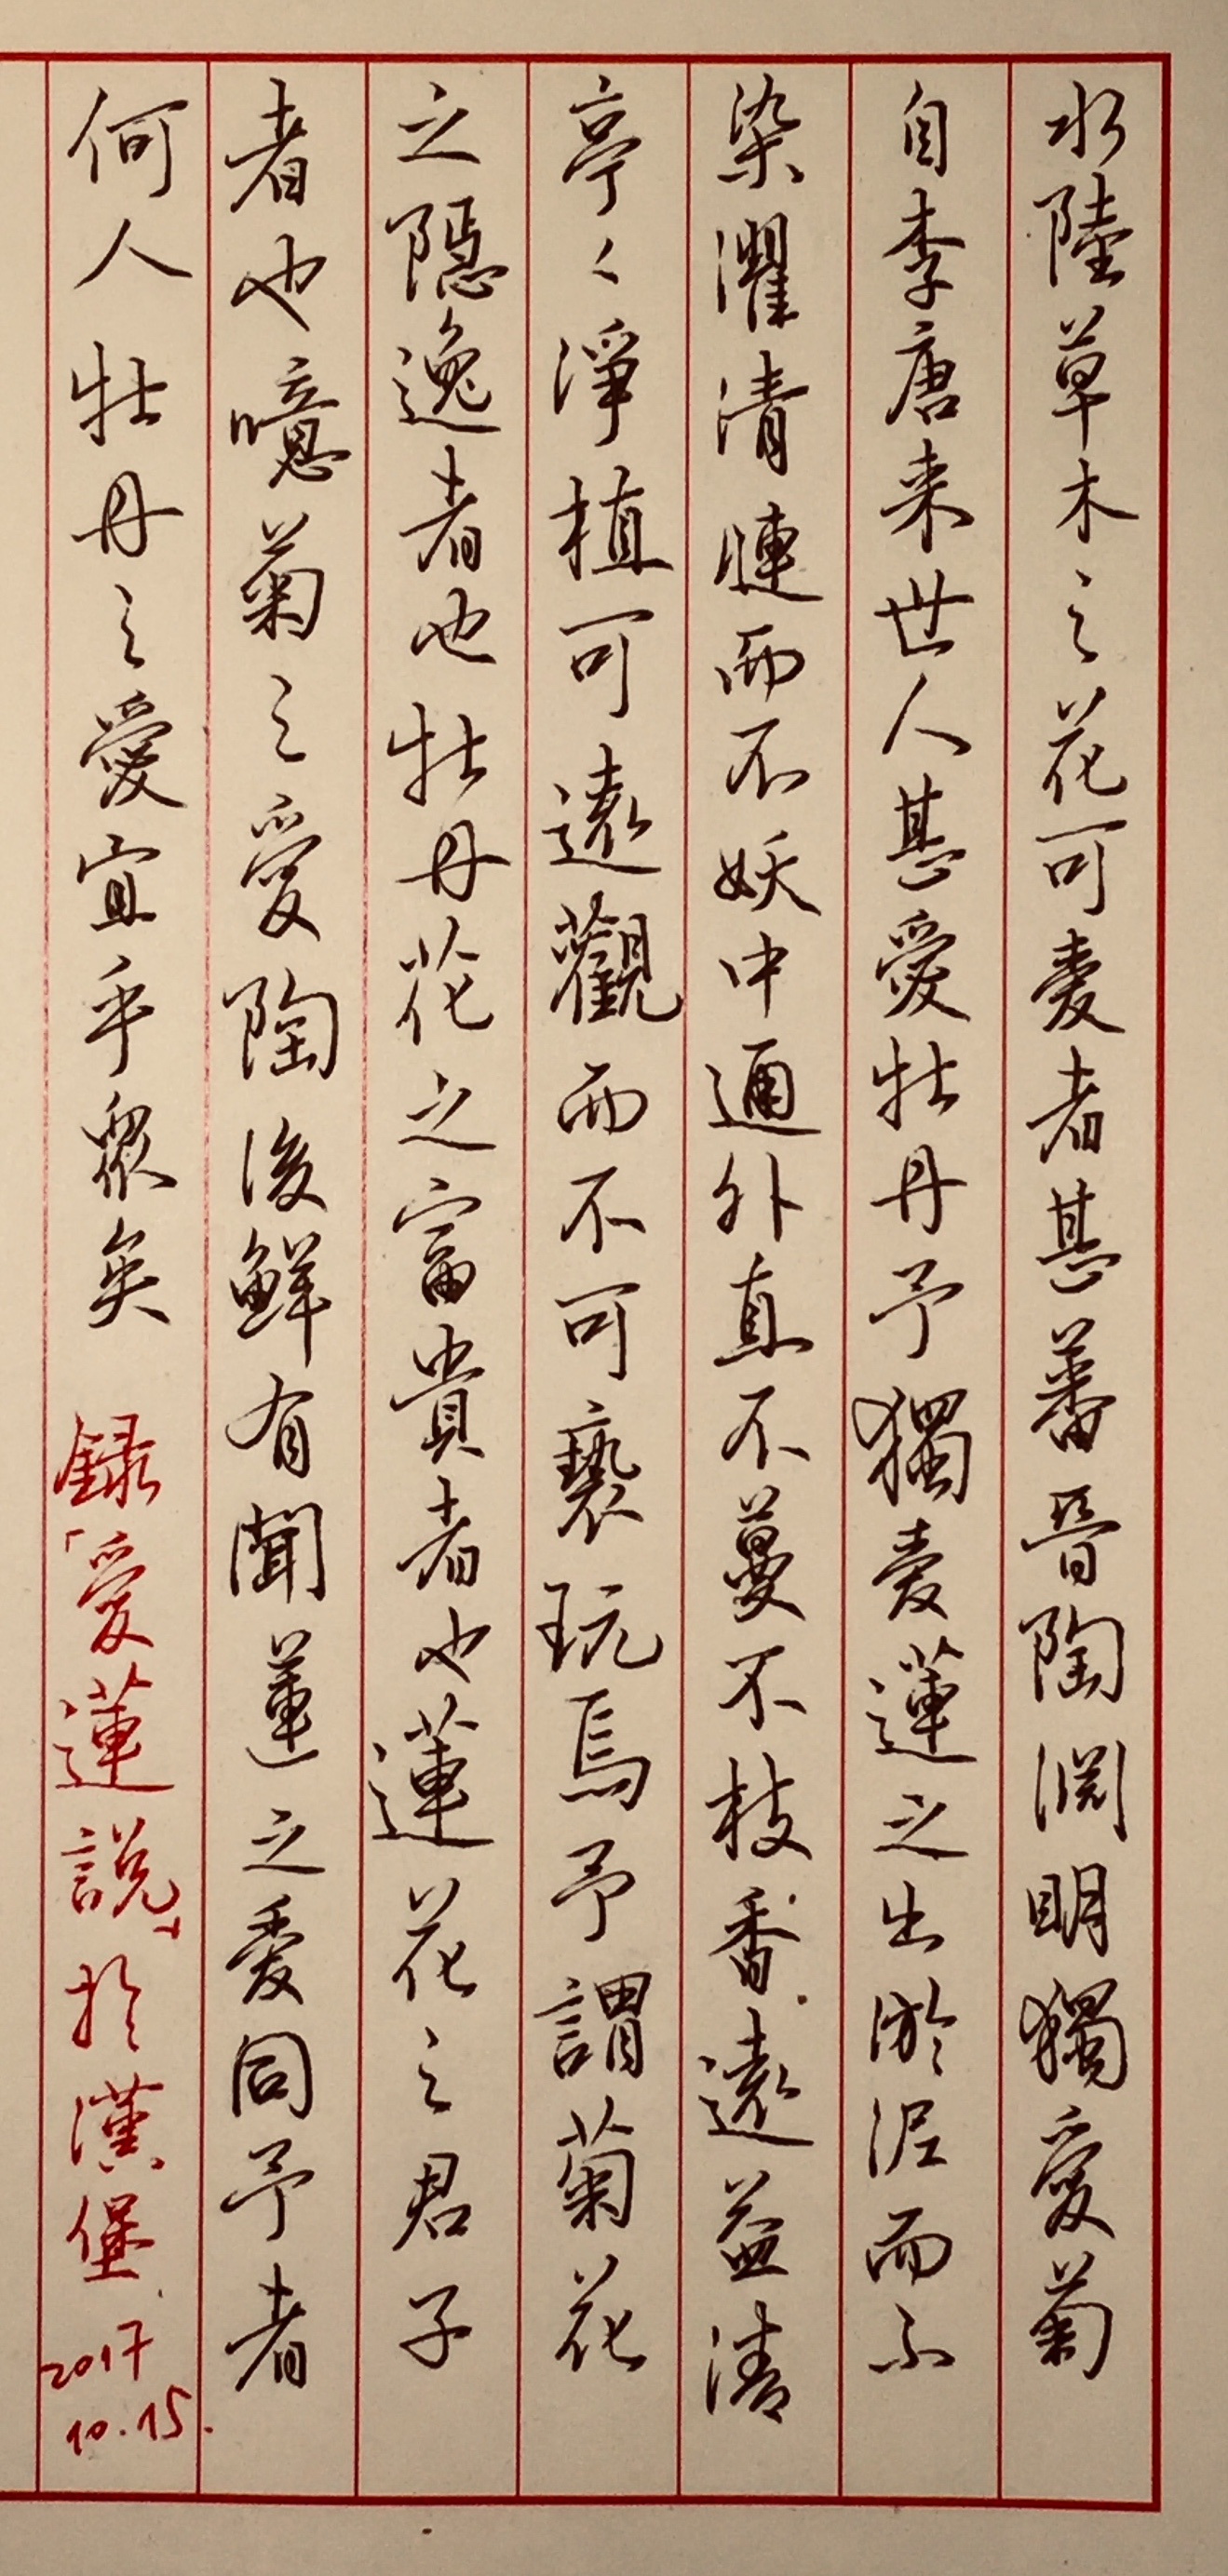 水陸草木之花可愛者甚蕃晉陶淵明獨愛菊
自李唐来世人甚愛牡丹予獨愛蓮之出淤泥而不
染濯清漣而不妖中通外直不蔓不枝香遠益清
亭々淨植可遠觀而不可褻玩焉予謂菊花
之隱逸者也牡丹花之富貴者也蓮花之君子
者也噫菊之愛陶後鮮有聞蓮之愛同予者
何人牡丹之愛宜乎眾矣 録「愛蓮説」於漢堡
2017
10.15.